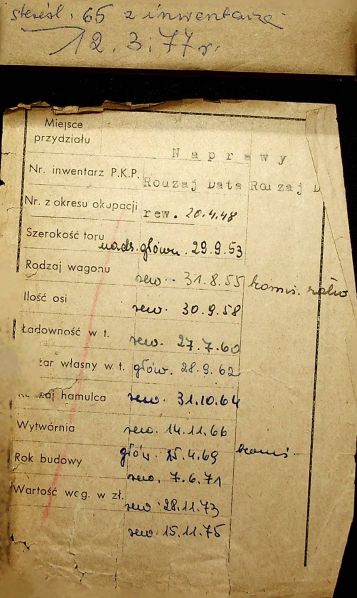 skreśl. 65 z inwentarza
12.3.77 r.
Miejsce
przydziału
Naprawy
Nr. inwentarz P.K.P.
Rodzaj Data Rodzaj D
Nr. z okresu okupacji
rew. 20.4.48
Szerokość toru
nads. główn. 29.9.53
Rodzaj wagonu
rew. 31.8.55
Ilość osi
rew. 30.9.58
Ładowność w t.
rew. 27.7.60
żar własny w t.
głów. 28.9.62
zaj hamulca
rew. 31.10.64
Wytwórnia
rew. 14.11.66
głów. 25.4.69
Rok budowy
rew. 7.6.71
Wartość wcg. w zł.
rew. 28.11.73
rew. 15.11.75